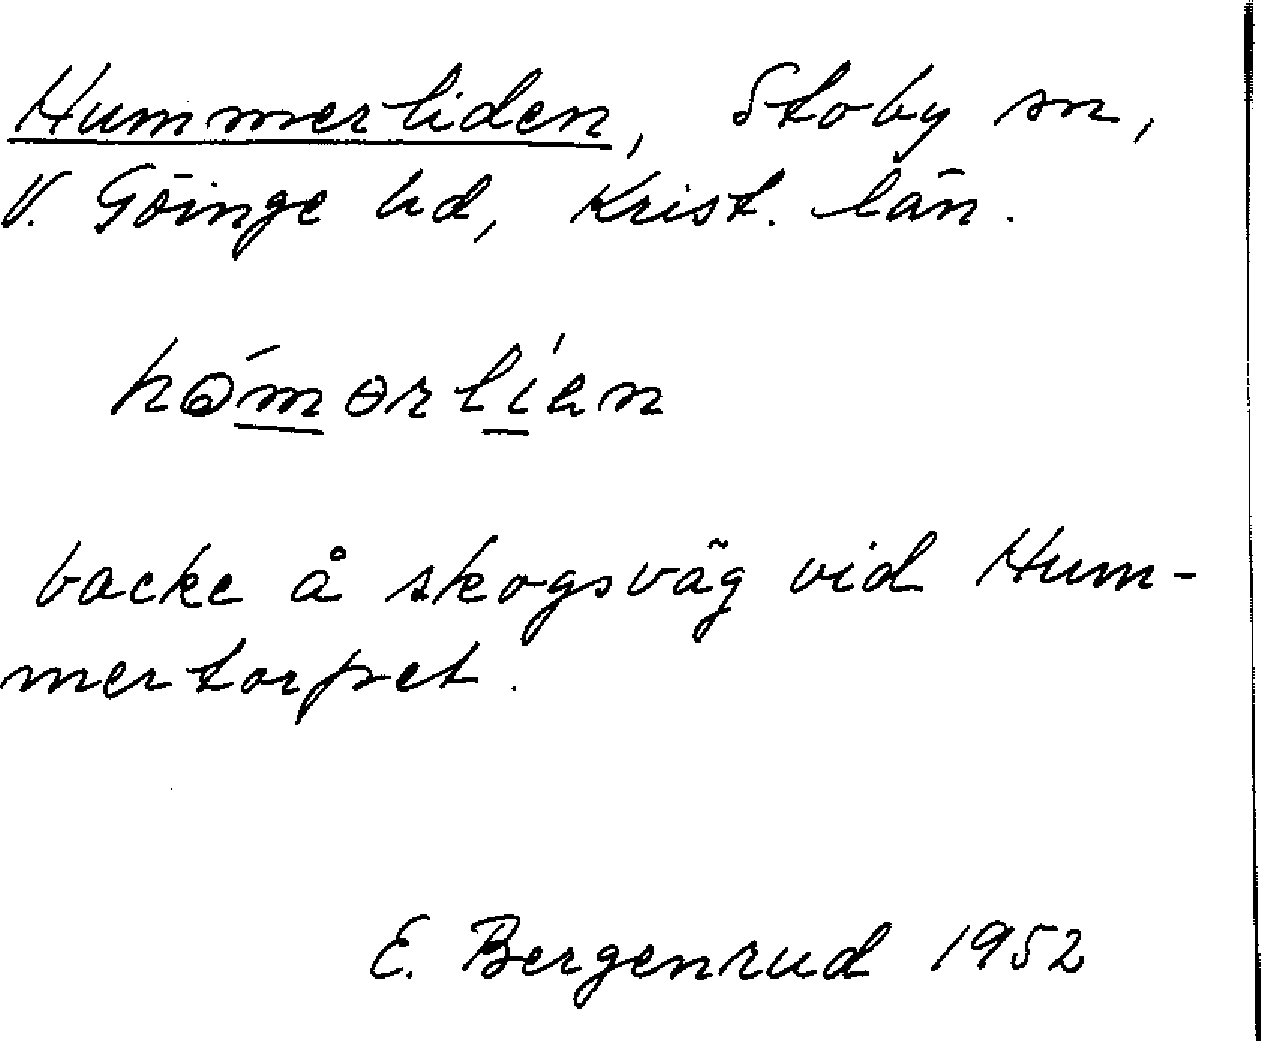 Hummerliden, Stoby sn,
V. Göinge hd, Krist. län.
hǫ́mɵrlíen
backe å skogsväg vid Hum-
mertorpet.
E. Bergenrud 1952